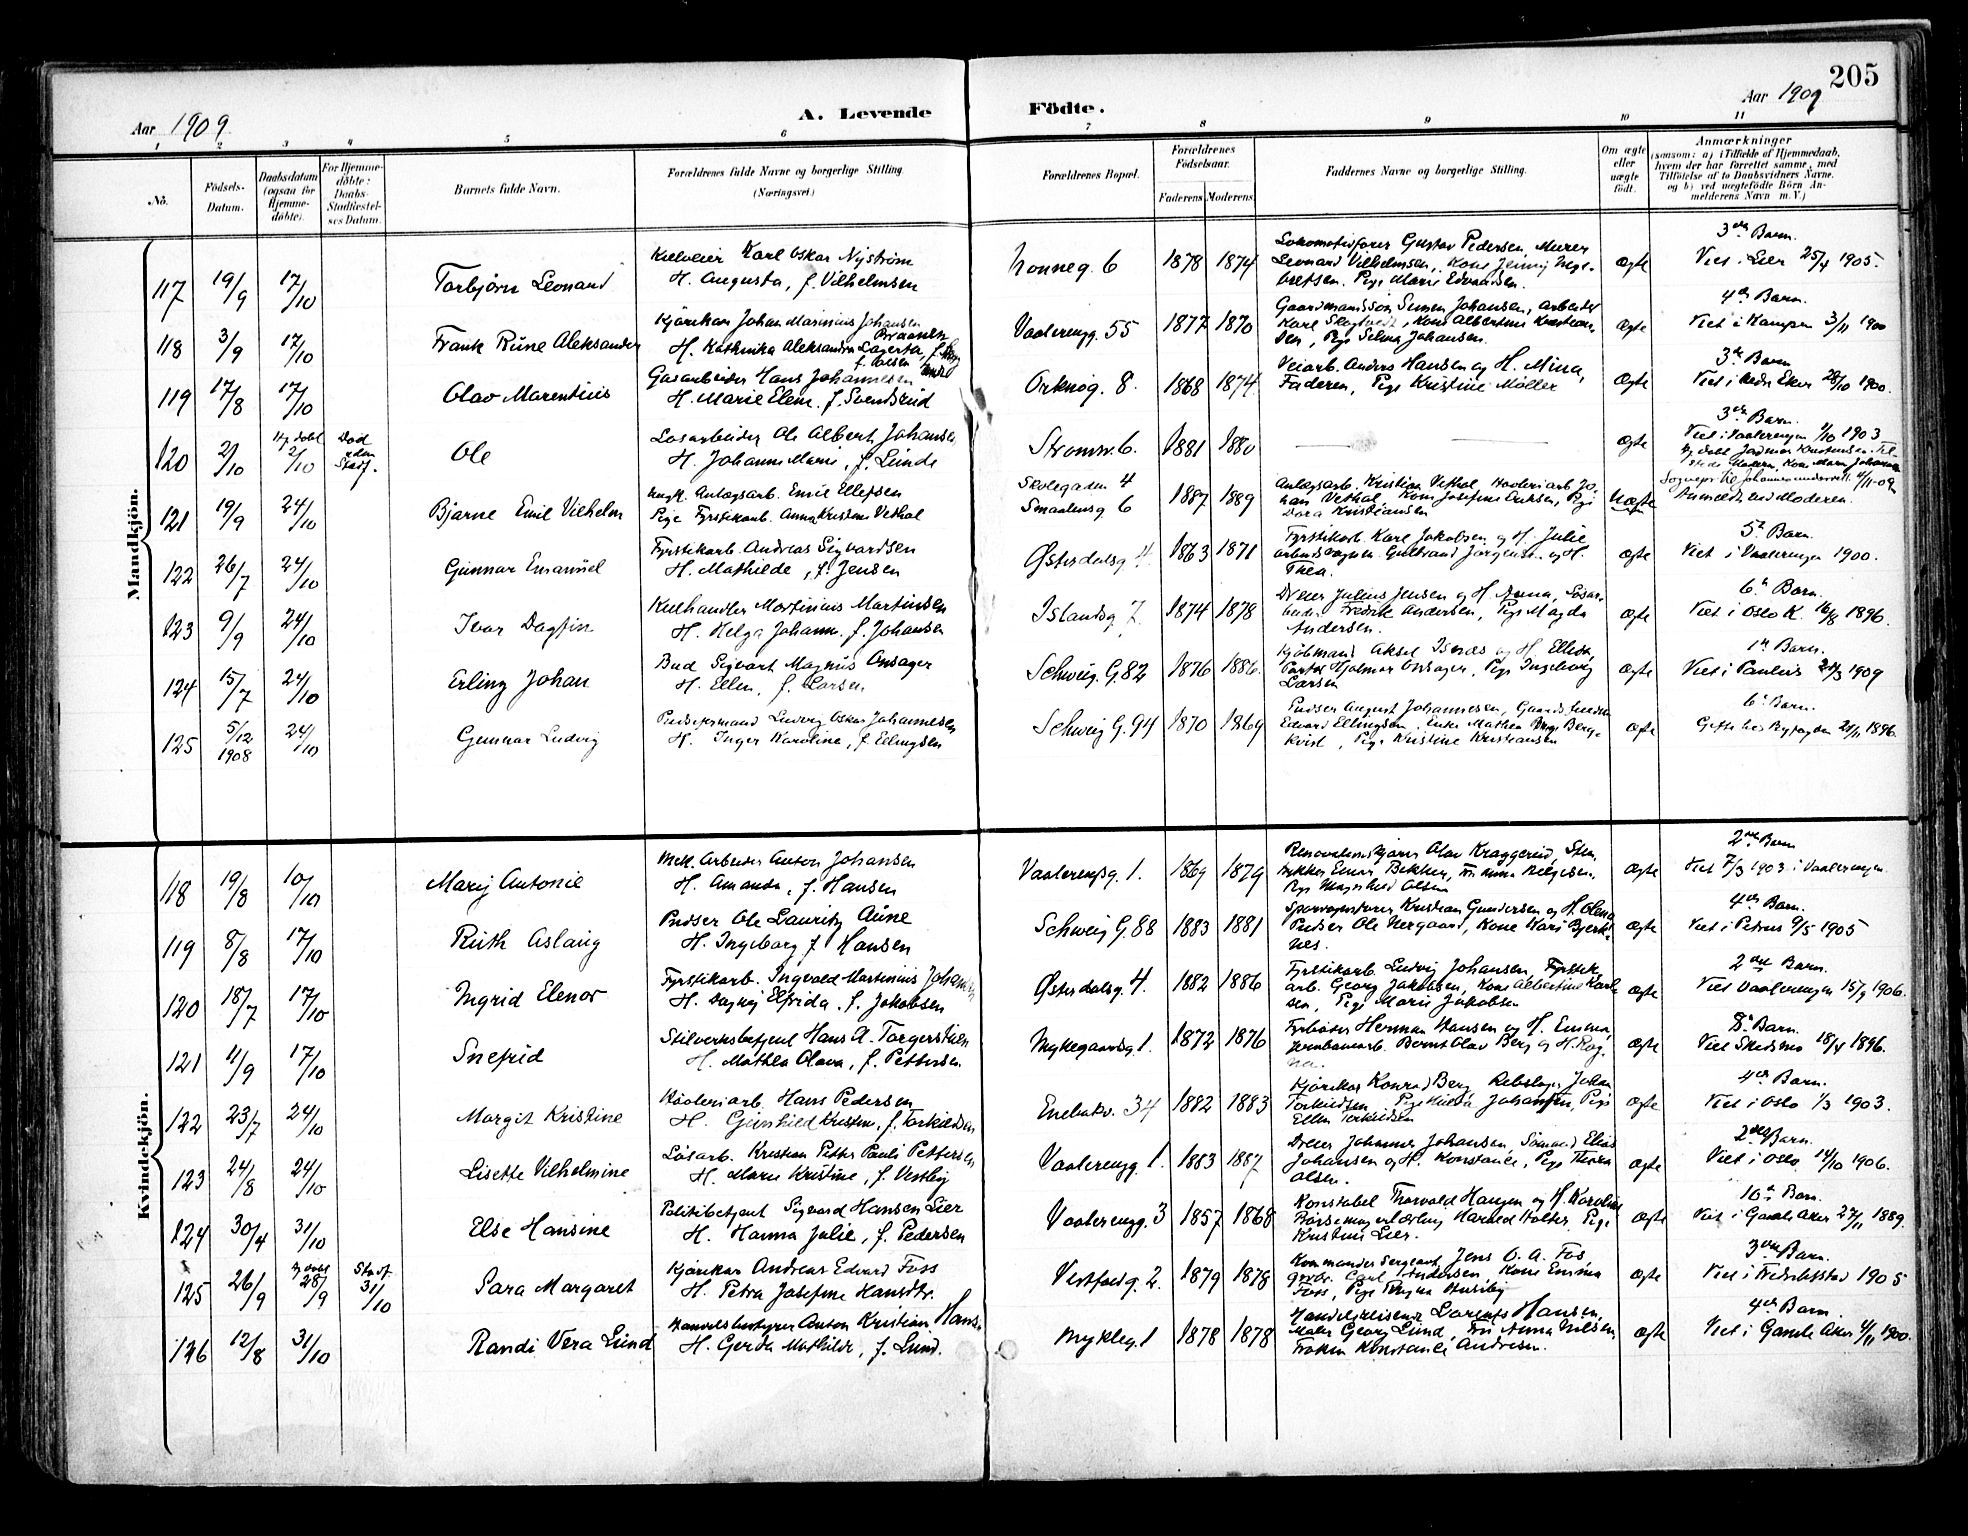 205
Aar 1909
A. Levende
Födte.
Aar 1909
1 2 3 4 5 6 7 8 9 10 11
No.
Födsels-Datum.
Daabsdatum (ogsaa for Hjemme-døbte).
For Hjemme-døbte: Daabs-Stadfæstel-ses Datum.
Barnets fulde Navn.
Forældrenes fulde Navne og borgerlige Stilling (Næringsvei)
Forældrenes Bopæl.
Forældrenes Födselsaar.
Faderens Moderens
Faddernes Navne og borgerlige Stilling.
Om ægte eller uægte födt.
Anmærkninger
(saasom: a) i Tilfælde af Hjemmedaab, hvem der har forrettet samme, med Tilföielse af to Daabsvidners Navne, og b) ved uægtefödte Börn Anmelderens Navn m. V.)
Mandkjön.
117 19/9 17/10 Torbjørn Leonard
Karl Oskar Nyström
H. Augusta, f. Vilhelmsen
Nonneg. 6 1878 1874
Lokomotivfører Gustav Pedersen, Murer
Leonard Vilhelmsen, Kone Jenny
Pige Marie Edvardsen.
ægte
3die Barn.
Viet i Lier 25/4 1905.
118 3/9 17/10 Frank Rúne Aleksander
Kjørekar Johan Marinius Johansen
H. Kathinka Aleksandra Lagerta, f.
Vaalerengg. 55 1877 1870
Gaardmandssøn Simen Johansen, Arbeider
Karl Kone Albertine Kristian-
sen, Pige Selma Johansen.
ægte
4de Barn.
Viet i Kampen 3/11 1900
119 17/8 17/10 Olav Marentius
Gasarbeider Hans Johannesen
H. Marie Elene f. Svendsrud
Orknøg. 8. 1868 1874
Veiarb. Anders Hansen og H. Mina,
Faderen, Pige Kristine Møller
ægte
3die Barn
Viet i Nedre Eker 28/10 1900.
120 2/10 Hj. døbt 2/10 Død uden Stadf.
Ole
Løsarbeider Ole Albert Johansen
H. Johanne Marie, f. Lunde
Strømsv. 6. 1881 1880
ægte
3die Barn.
Viet i Vaalerengen 1/10 1903
121 19/9 24/10 Bjarne Emil Vilhelm
Ungk. Anlægsarb. Emil Ellefsen
Pige Fyrstikarb. Anna Kristine Vethal
Skolegaden 4
Smaalensg 6 1887 1889
Anlægsarb. Kristian Vethal, Høvleriarb. Jo-
han Vethal, Kone Josefine Eriksen, Pige
Dora Kristiansen
Uægte
Anmeldt ved Moderen.
122 26/7 24/10 Gunnar Emanuel
Fyrstikarb. Andreas Sigvardsen
H. Mathilde, f. Jensen
Østerdalsg. 4. 1863 1871
Fyrstikarb. Karl Jakobsen og H. Julie
Gulbrand Jørgensen og H.
Thea.
ægte
5te Barn.
Viet i Vaalerengen 1900.
123 9/9 24/10 Ivar Dagfin
Kulhandler Martinius Martinsen
H. Helga Johanne f. Johansen
Islandsg 7. 1874 1878
Dreier Julius Jensen og H. Anna, Løsar-
beider Fredrik Andersen, Pige Magda
Andersen.
ægte
6te Barn.
Viet i Oslo K. 16/8 1896.
124 15/7 24/10 Erling Johan
Bud Sigvart Magnus Onsager
H. Ellen, f. Larsen
Schweig. G. 82 1876 1886.
Kjøbmand Aksel og H. Ellida,
Hjalmar Onsager, Pige Ingeborg
Larsen
ægte
1te Barn.
Viet i Paulus 1909
125 5/12 1908 24/10 Gunnar Ludvig
Pudsermand Ludvig Oskar Johannesen
H. Inger Karoline, f. Ellingsen
Schweig G. 94 1870 1869
Pudser August Johannesen,
Edvard Ellingsen, Enke Mathea Berg-
kvist, Pige Kristine Kristiansen
ægte
6te Barn.
Gifte hos Byfogden 21/11 1896.
Kvindekjön.
118 19/8 10/10 Mary Antonie
Mek. Arbeider Anton Johansen
H. Amanda, f. Hansen
Vaalerengg. 1. 1869 1879
Renovationskjører Olav Kraggerud, Sten-
hykker Einar Bekker,
Pige Magnhild Olsen
ægte
2det Barn
Viet 7/3 1903 i Vaalerengen.
119 8/8 17/10 Ruth Aslaug
Pudser Ole Lauritz Aúne
H. Ingeborg f Hansen
Schweig G. 88 1883 1881
Sporvognsfører Kristian Gundersen og H. Olena
Pudser Ole Nergaard, Kone Kari Bjerk-
nes.
ægte
4de Barn.
Viet i Petrus 9/5 1905
120 18/7 17/10 Ingrid Elenor
Fyrstikarb. Ingvald Martinius Johansen
H. Dagny Elfrida, f. Jakobsen
Østerdalsg. 4. 1882 1886
Fyrstikarb. Ludvig Johansen, Fyrstik-
arb. Georg Jakobsen, Kone Albertine Karl-
sen, Pige Marie Jakobsen
ægte
2det Barn.
Viet Vaalerengen 15/9 1906.
121 4/9 17/10 Snefrid
Hans A. Torgerstuen
H. Mathea Olava, f. Pettersen.
Myklegaardsg. 1. 1872 1876
Fyrbøder Herman Hansen og H. Emma,
Jernbanearb. Bernt Olav Berg og H. Rag-
na.
ægte
8de Barn.
Viet Skedsmo 18/4 1896.
122 23/7 24/10 Margit Kristine
Høvleriarb. Hans Pedersen
H. Gunhild Kristine, f. Torkildsen
Enebakv. 34 1882 1883
Kjørekar Konrad Berg, Rebslager Johan
Torkildsen, Pige Hilda Johansen, Pige
Ellen Torkildsen
ægte
4de Barn.
Viet i Oslo 1/3 1903.
123 24/8 24/10 Lisette Vilhelmine
Løsarb. Kristian Petter Pauli Pettersen
H. Marie Kristine, f. Vestby
Vaalerengg. 1. 1883 1887
Dreier Johannes Johansen, Sømand Elias
Johansen og H. Konstance, Pige Thora
Olsen.
ægte
2det Barn.
Viet i Oslo 14/10 1906.
124 30/4 31/10 Else Hansine
Politibetjent Sigvard Hansen Lier
H. Hanna Julie, f. Pedersen
Vaalerengg. 3 1857 1868
Konstabel Thorvald Haugen og H. Karoline
Harald Holter, Pige
Kristine Lier.
ægte
10de Barn.
Viet i Gamle Aker 27/11 1889.
125 26/9 Hj. døbt 28/9 Stadf. 31/10 Sara Margaret
Kjørekar Andreas Edvard Foss
H. Petra Josefine Hansdtr.
Vestfoldg. 2. 1879 1878
Kommandersergeant Jens O. A. Fos
Carl Andersen, Kone Emma
Foss, Pige Magna Huseby
ægte
3die Barn.
Viet i Fredrikstad 1905
126 12/8 31/10 Randi Vera Lund
Handelsbestyrer Anton Kristian Hans.
H. Gerda Mathilde, f. Lund.
Mykleg. 1 1878 1878
Handelsreisende Lorents Hansen,
Maler Georg Lund, Fru Anna Nilsen,
Frøken Konstance Andresen.
ægte
4de Barn.
Viet i Gamle Aker 4/11 1900.